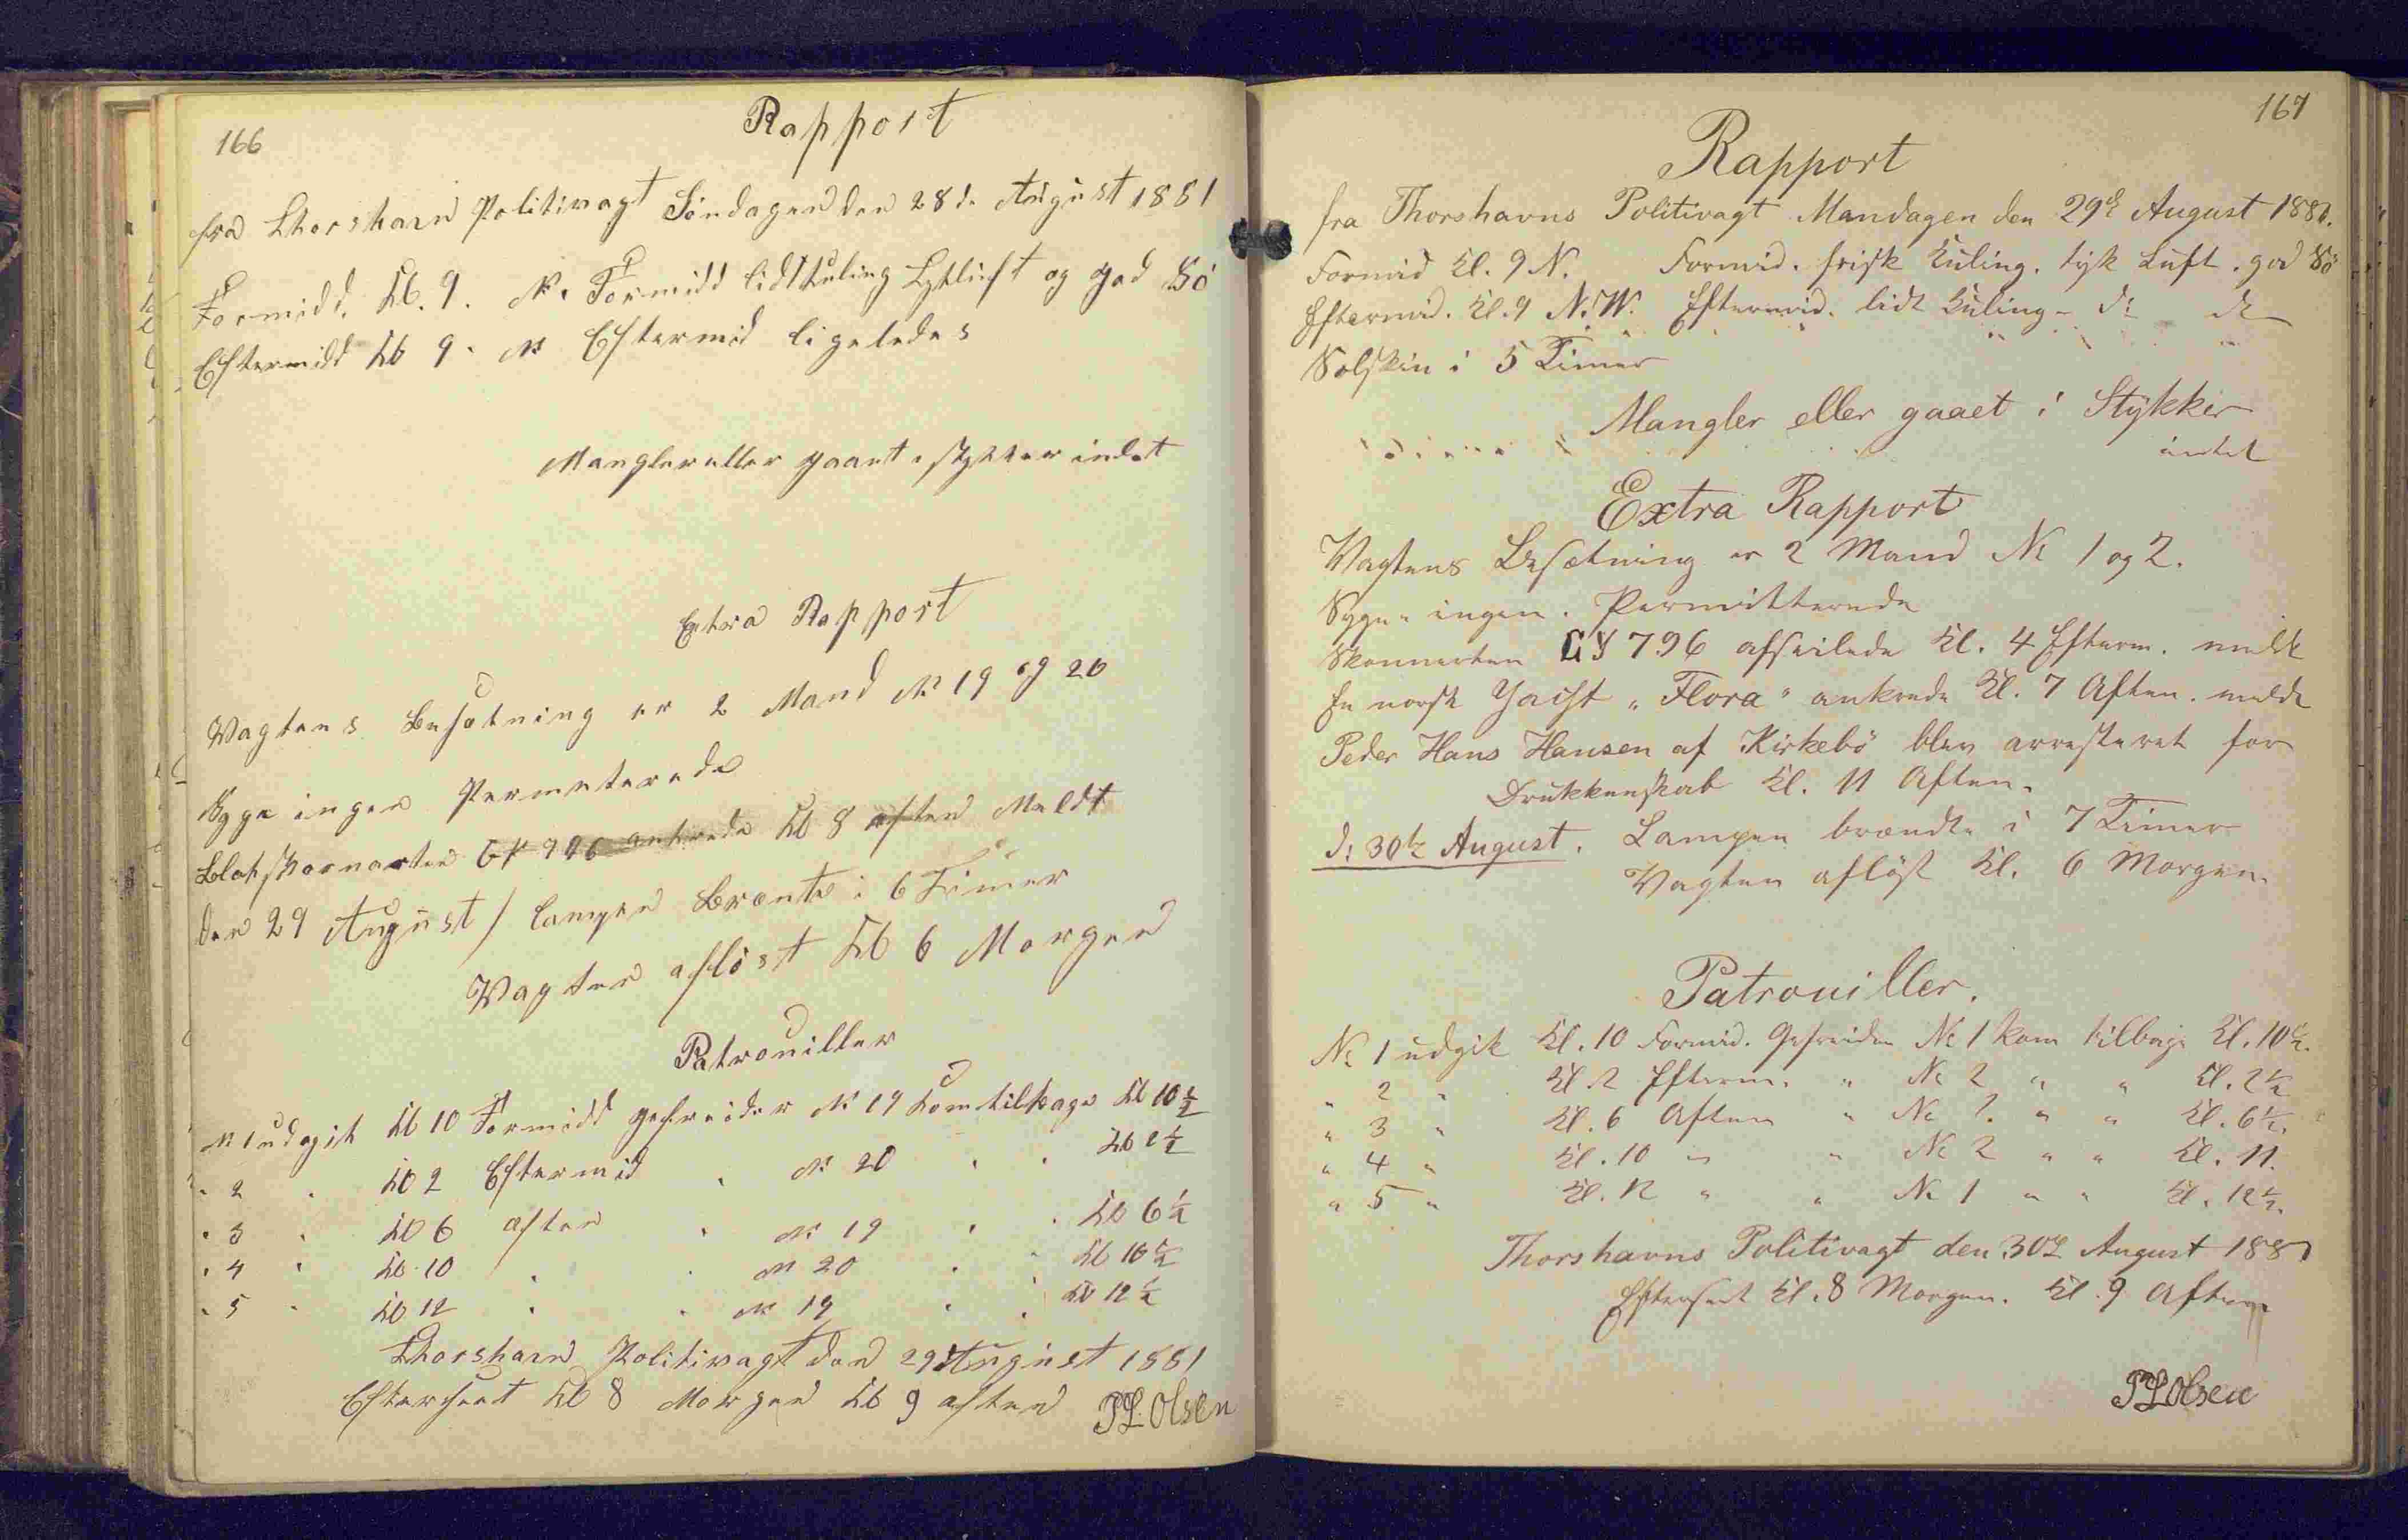 166
Rapport
fra Thorshavn Politivagt Söndagen den 28de August 1881
Formidd. Kl. 9. N. Formidd lidt Kuling Tykluft og god Sö
Eftermidd Kl 9. N Eftermid ligeledes
Mangler eller gaaet i stykker indet
Extra Rapport
Vagtens Besætning er 2 Mand No 19 og 20
Syge ingen Permeterede
ankrede Kl 8 aften Meldt
den 29 August / Lampen Brænte i 6 Timer
Vagten aflöst Kl 6 Morgen
Patrouiller
No 1 udgik Kl 10 Formidd gefreider No 19 Kom tilbage Kl 10½
" 2 " Kl 2 Eftermid " No 20 " " Kl 2½
" 3 " Kl 6 aften " No 19 " " Kl 6½
" 4 " Kl 10 " " No 20 " " Kl 10½
" 5 " Kl 12 " " No 19 " " Kl 12½
Thorshavn Politivagt den 29 August 1881
Efterseet Kl 8 Morgen Kl 9 aften PL Olsen
167
Rapport
fra Thorshavns Politivagt Mandagen den 29de August 1881.
Formid Kl. 9 N. Formid. frisk Kuling. tyk Luft. god Sö
Eftermid. Kl. 9 N.W. Eftermid. lidt Kuling - do do
Solskin i 5 Timer
Mangler eller gaaet i Stykker
intet
Extra Rapport
Vagtens Besætning er 2 Mand No 1 og 2.
Syge " ingen. Permitterede
Skonnerten GY 796 afseilede Kl. 4 Efterm. meldt
En norsk Jacht „Flora" ankrede Kl. 7 Aften. meldt
Peder Hans Hansen af Kirkebö blev arresteret for
Drukkenskab Kl. 11 Aften.
d: 30te August. Lampen brændte i 7 Timer
Vagten aflöst Kl. 6 Morgen.
Patrouiller.
No 1 udgik Kl. 10 Formid. Gefreider No 1 kom tilbage Kl. 10½.
" 2 " Kl. 2 Efterm. " No 2 " " Kl. 2½
" 3 " Kl. 6 Aften " No 1. " " Kl. 6½.
" 4 " Kl. 10 " " No 2 " " Kl. 11.
" 5 " Kl. 12 " " No 1 " " Kl. 12½.
Thorshavns Politivagt den 30te August 1881
Efterseet Kl. 8 Morgen. Kl. 9 Aften
PL Olsen